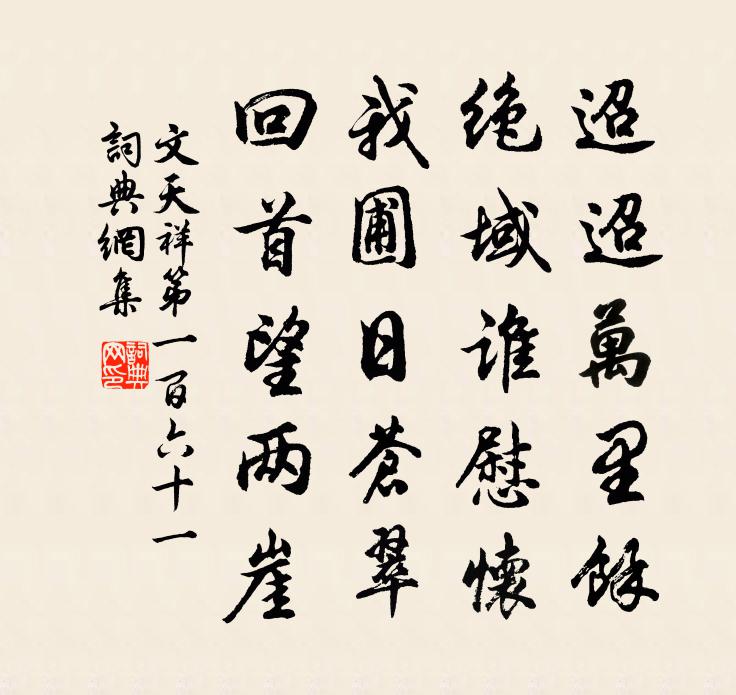 迢迢萬里餘
絶域誰慰懷
我圃日蒼翠
回首望两崖
文天祥第一百六十一
詞典網集
詞典網印